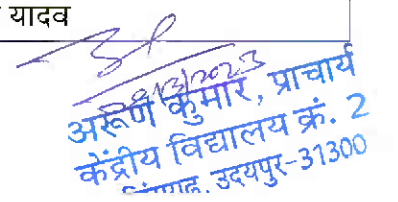 यादव
अरूण कुमार, प्राचार्य
केंद्रीय विद्यालय क्रं. 2
उदयपुर-31300